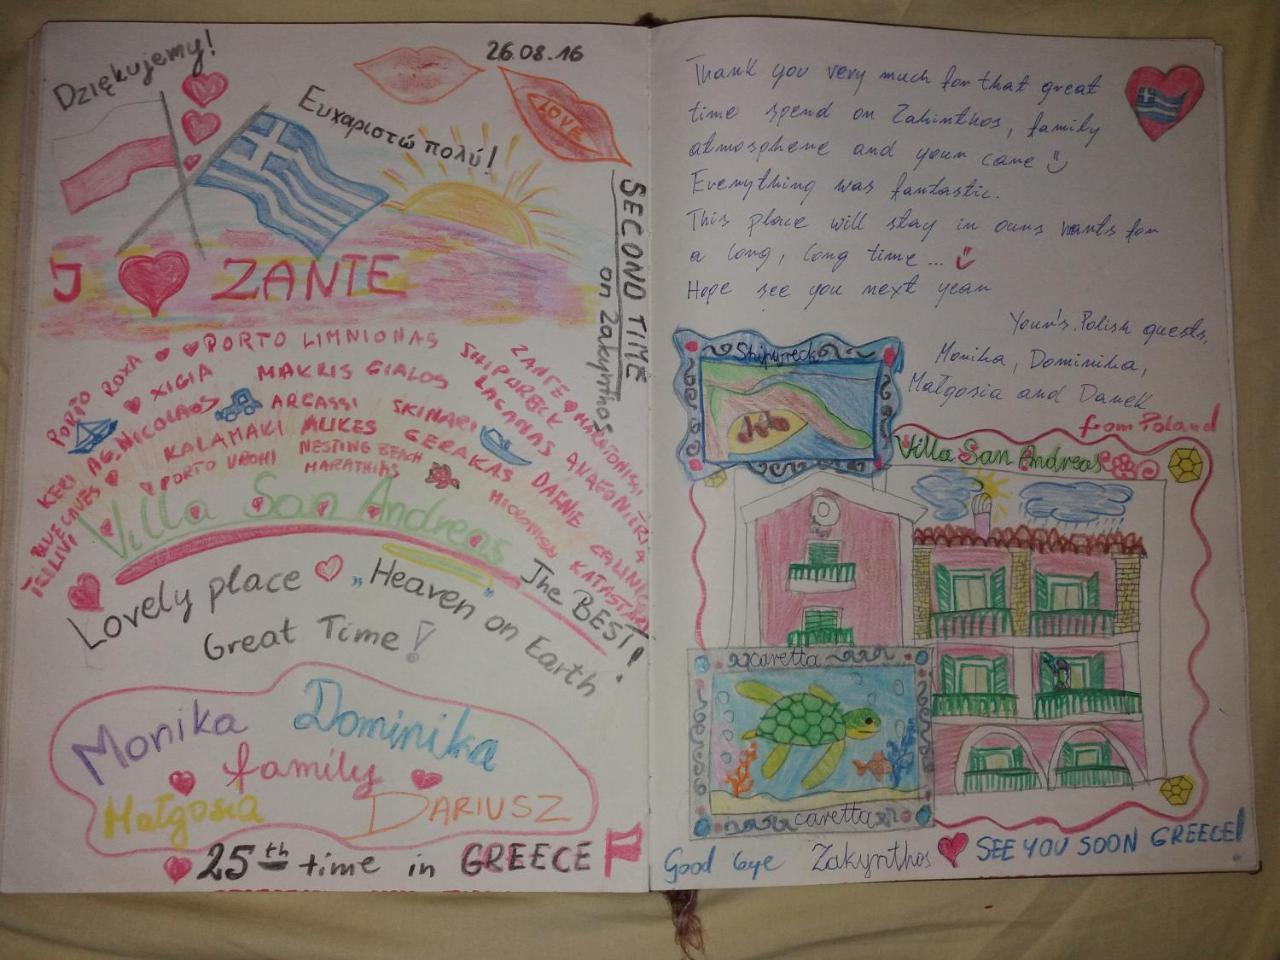 Dziękujemy!
26.08.16
Ευχαριστώ πολύ!
LOVE
SECOND TIME
on Zakynthos
I ZANTE
PORTO LIMNIONAS
PORTO ROXA
XIGIA
MAKRIS GIALOS
SHIPWRECK
ZANTE MARATONISSI
AG. NICOLAOS
ARGASSI
SKINARI
LAGANAS
KERI
KALAMAKI
GERAKAS
NESTING BEACH
BLUE CAVES
PORTO VROMI
MARATHIAS
DAFNE
TSILIVI
Villa San Andreas
Lovely place „Heaven on Earth"!
The BEST!
Great Time!
Monika Dominika
family
Małgosia DARIUSZ
25th time in GREECE
Thank you very much for that great
time spend on Zakinthos, family
atmosphere and your care
Everything was fantastic.
This place will stay in ours harts for
a long, long time...
Hope see you next year
Your's Polish guests,
Monika, Dominika,
Małgosia and Darek
from Poland
Shipwreck
Villa San Andreas
caretta
caretta
Good bye Zakynthos SEE YOU SOON GREECE!